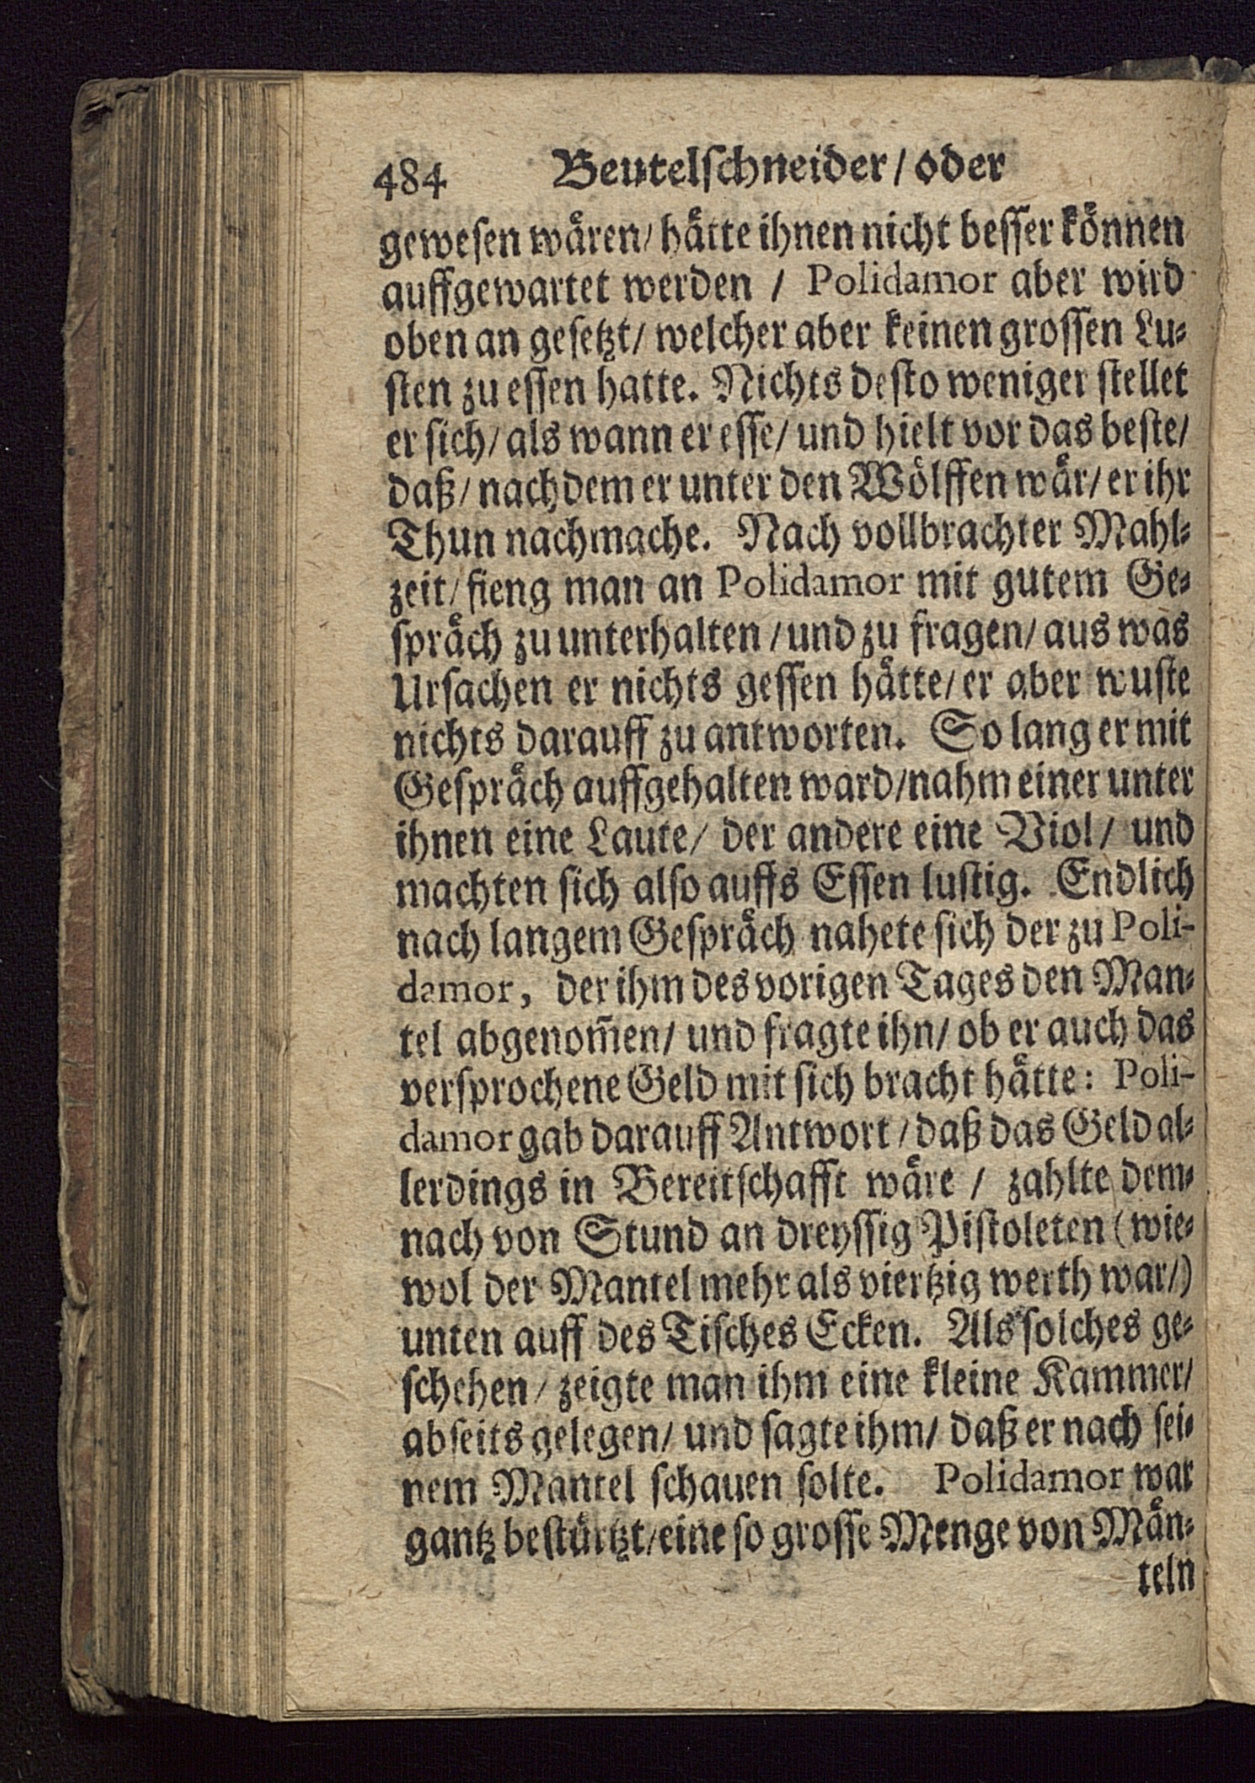 484 Beutelschneider / oder
gewesen wären / hätte ihnen nicht besser können
auffgewartet werden / Polidamor aber wird
oben an gesetzt / welcher aber keinen grossen Lu-
sten zu essen hatte. Nichts desto weniger stellet
er sich / als wann er esse / und hielt vor das beste /
daß / nachdem er unter den Wölffen wär / er ihr
Thun nachmache. Nach vollbrachter Mahl-
zeit / fieng man an Polidamor mit gutem Ge-
spräch zu unterhalten / und zu fragen / aus was
Ursachen er nichts gessen hätte / er aber wuste
nichts darauff zu antworten. So lang er mit
Gespräch auffgehalten ward / nahm einer unter
ihnen eine Laute / der andere eine Viol / und
machten sich also auffs Essen lustig. Endlich
nach langem Gespräch nahete sich der zu Poli-
damor, der ihm des vorigen Tages den Man-
tel abgenom̃en / und fragte ihn / ob er auch das
versprochene Geld mit sich bracht hätte: Poli-
damor gab darauff Antwort / daß das Geld al-
lerdings in Bereitschafft wäre / zahlte dem-
nach von Stund an dreyssig Pistoleten (wie-
wol der Mantel mehr als viertzig werth war /)
unten auff des Tisches Ecken. Als solches ge-
schehen / zeigte man ihm eine kleine Kammer /
abseits gelegen / und sagte ihm / daß er nach sei-
nem Mantel schauen solte. Polidamor war
gantz bestürtzt / eine so grosse Menge von Män-
teln